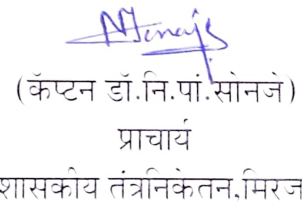 (कॅप्टन डॉ.नि.पां.सोनजे)
प्राचार्य
शासकीय तंत्रनिकेतन,मिरज